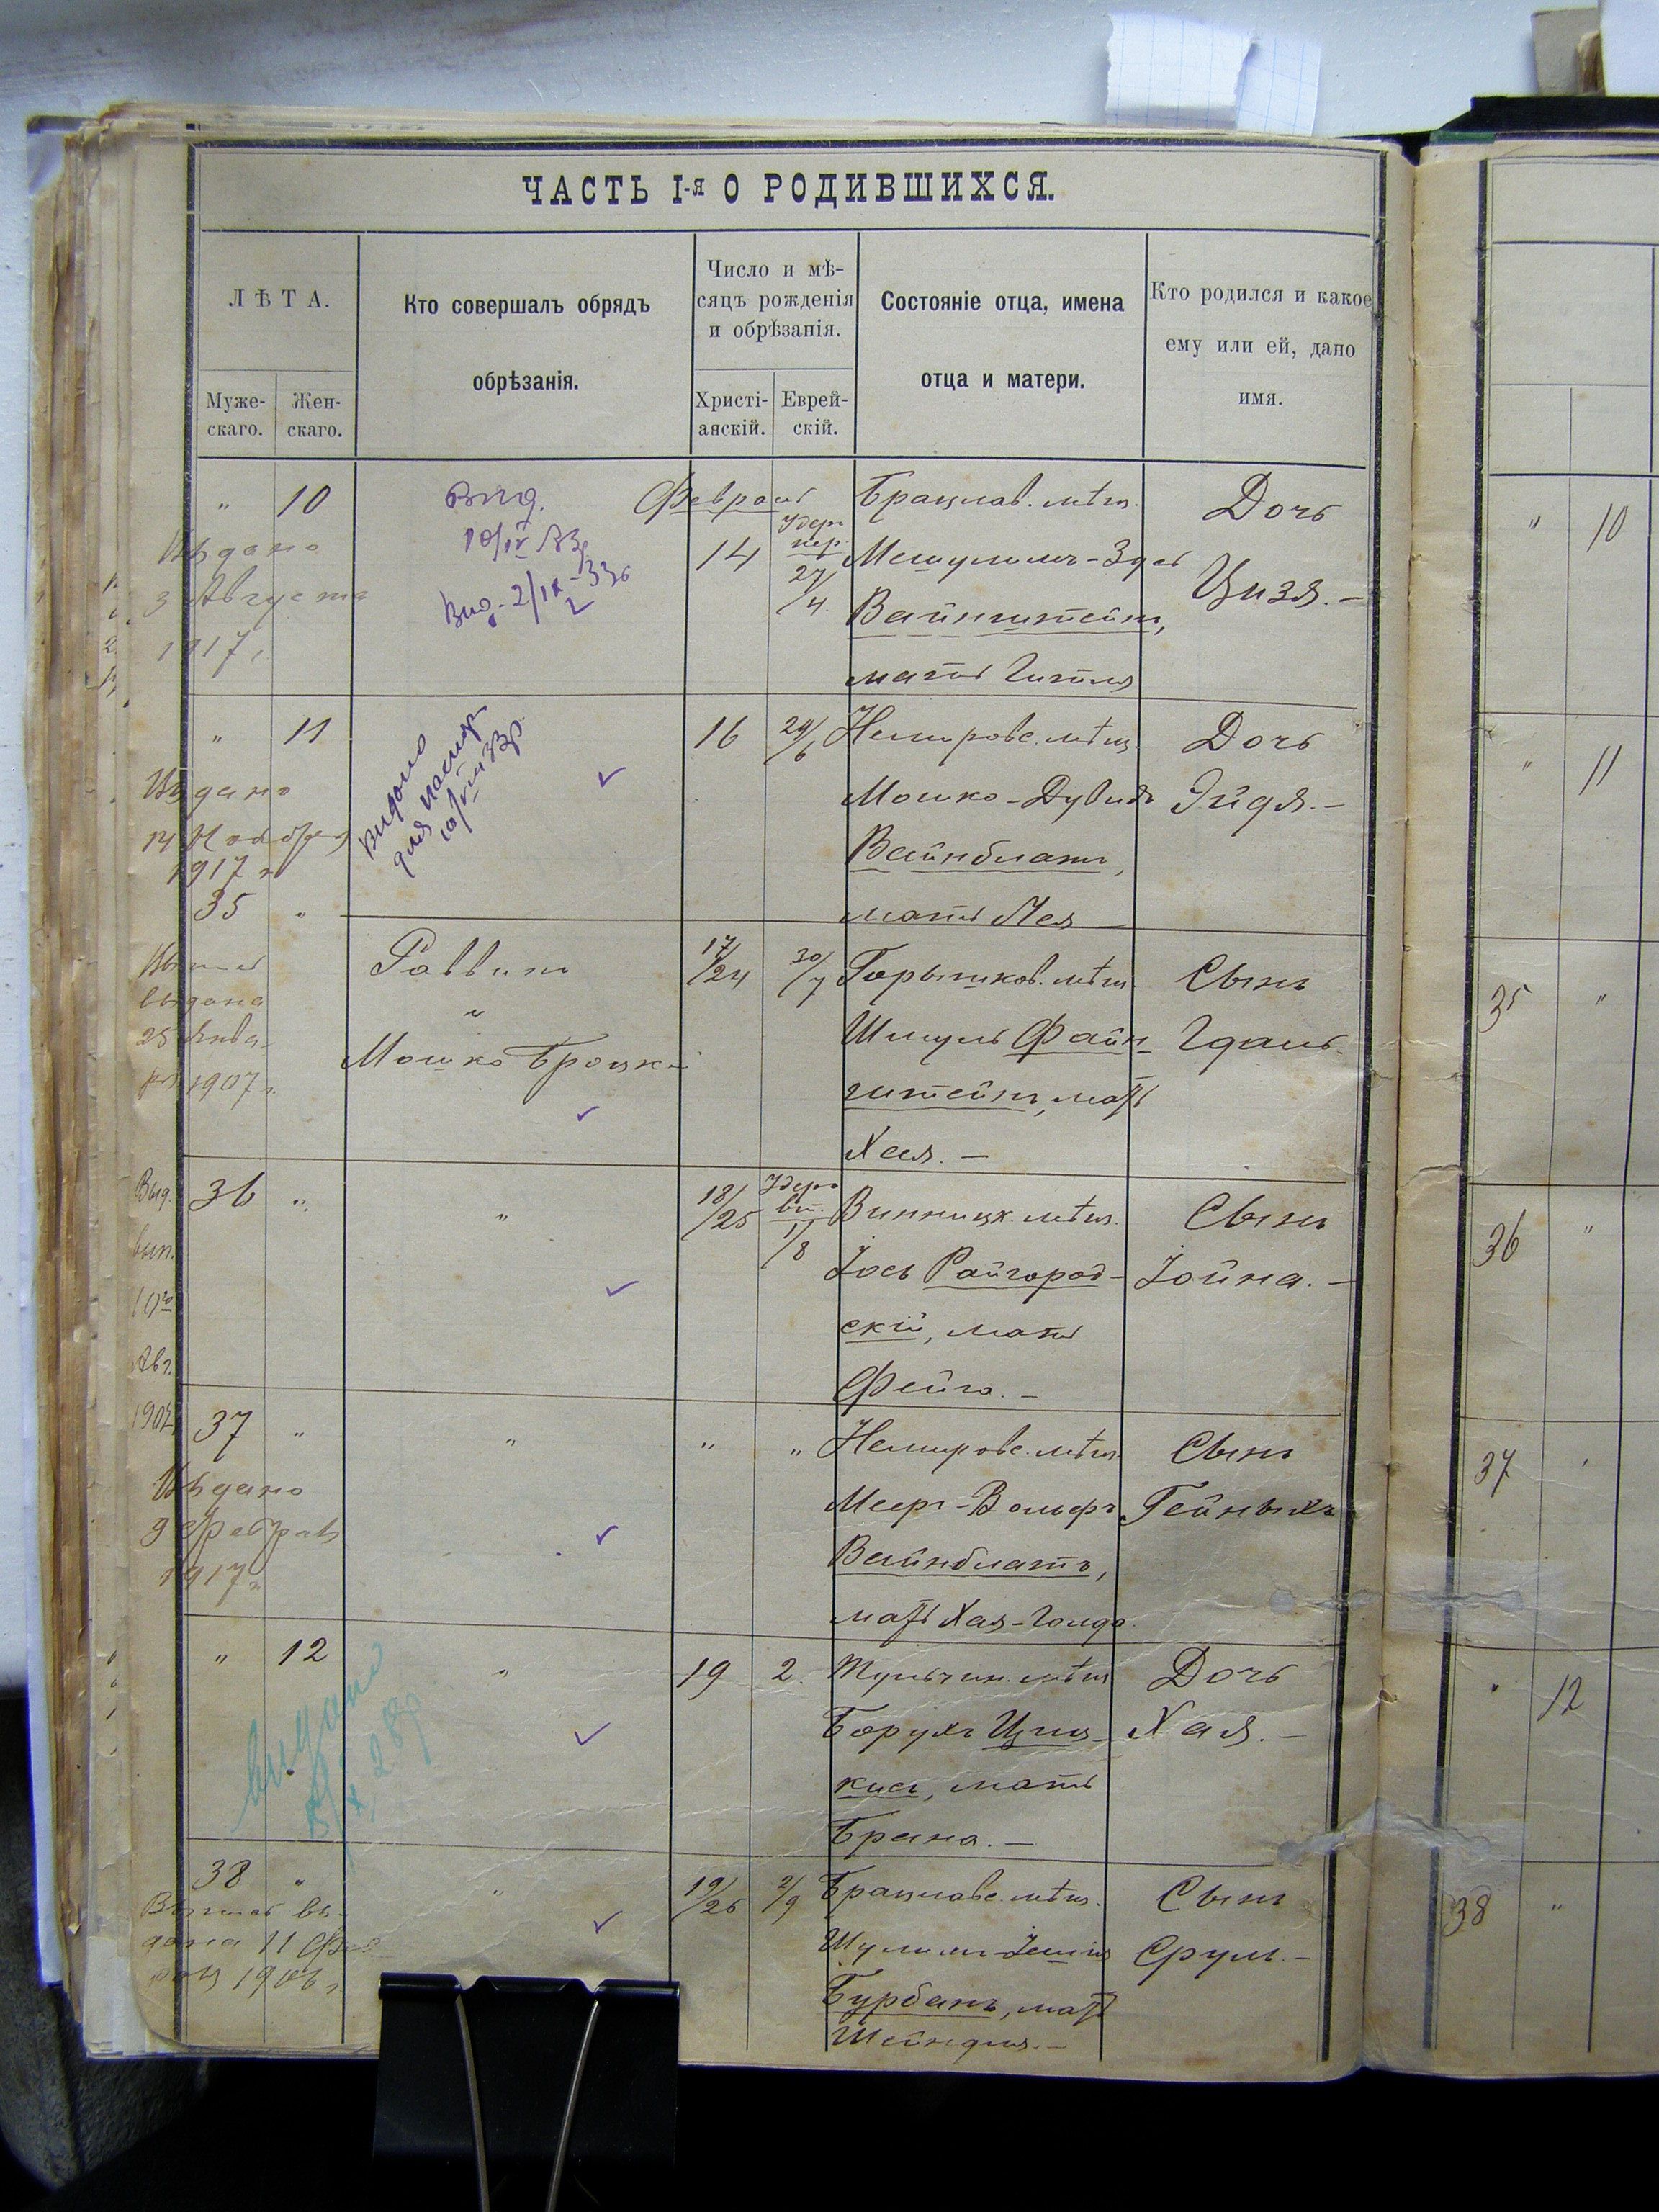 ЧАСТЬ I-я О РОДИВШИХСЯ.
ЛѢТА.
Муже-
скаго.
Жен-
скаго.
Кто совершалъ обрядъ
обрѣзанія.
Число и мѣ-
сяцъ рожденія
и обрѣзанія.
Христі-
анскій.
Еврей-
скій.
Состояніе отца, имена
отца и матери.
Кто родился и какое
ему или ей, дано
имя.
" 10
Выдано
3 Августа
1917 г.
Вид.
Февраль
14
Адеръ
пер.
27/4
Брацлав. мѣщ.
Мешулимъ-Зусь
Вайнштейнъ,
мать Гитля
Дочь
Цизя. —
" 11
Выдано
14 Ноября
1917 г
Видано
для паспор
16
29/6
Немировс. мѣщ.
Мошко-Дувидъ
Вайнблатъ,
мать Лея —
Дочь
Эйдя. —
35 "
выдана
25 Янва-
ря 1907 г.
Раввинъ
"
Мошко Бродскій
17/24
30/7
Горышков. мѣщ.
Шмуль Файн-
штейнъ, мать
Хая. —
Сынъ
Гдаль.
36 "
Выд.
вып.
10го
Авг.
"
18/25
Адеръ
вт.
1/8
Винницк. мѣщ.
Іось Райгород-
скій, мать
Фейга. —
Сынъ
Іойна. —
37 "
Выдано
9 Февраля
1917 г
"
" "
Немировс. мѣщ.
Мееръ-Вольфъ
Вайнблатъ,
мать Хая-Голда
Сынъ
Гейныхъ
" 12
видано
"
19
2.
Тульчин. мѣщ
Борухъ Цип-
кисъ, мать
Брана. —
Дочь
Хая. —
38 "
дана 11 Фев
1906 г
"
19/26
2/9
Брацлавс. мѣщ.
Бурбанъ, мать
Шейндля. —
Сынъ
Сруль. —
" 10
" 11
35 "
36 "
37
12
38 "